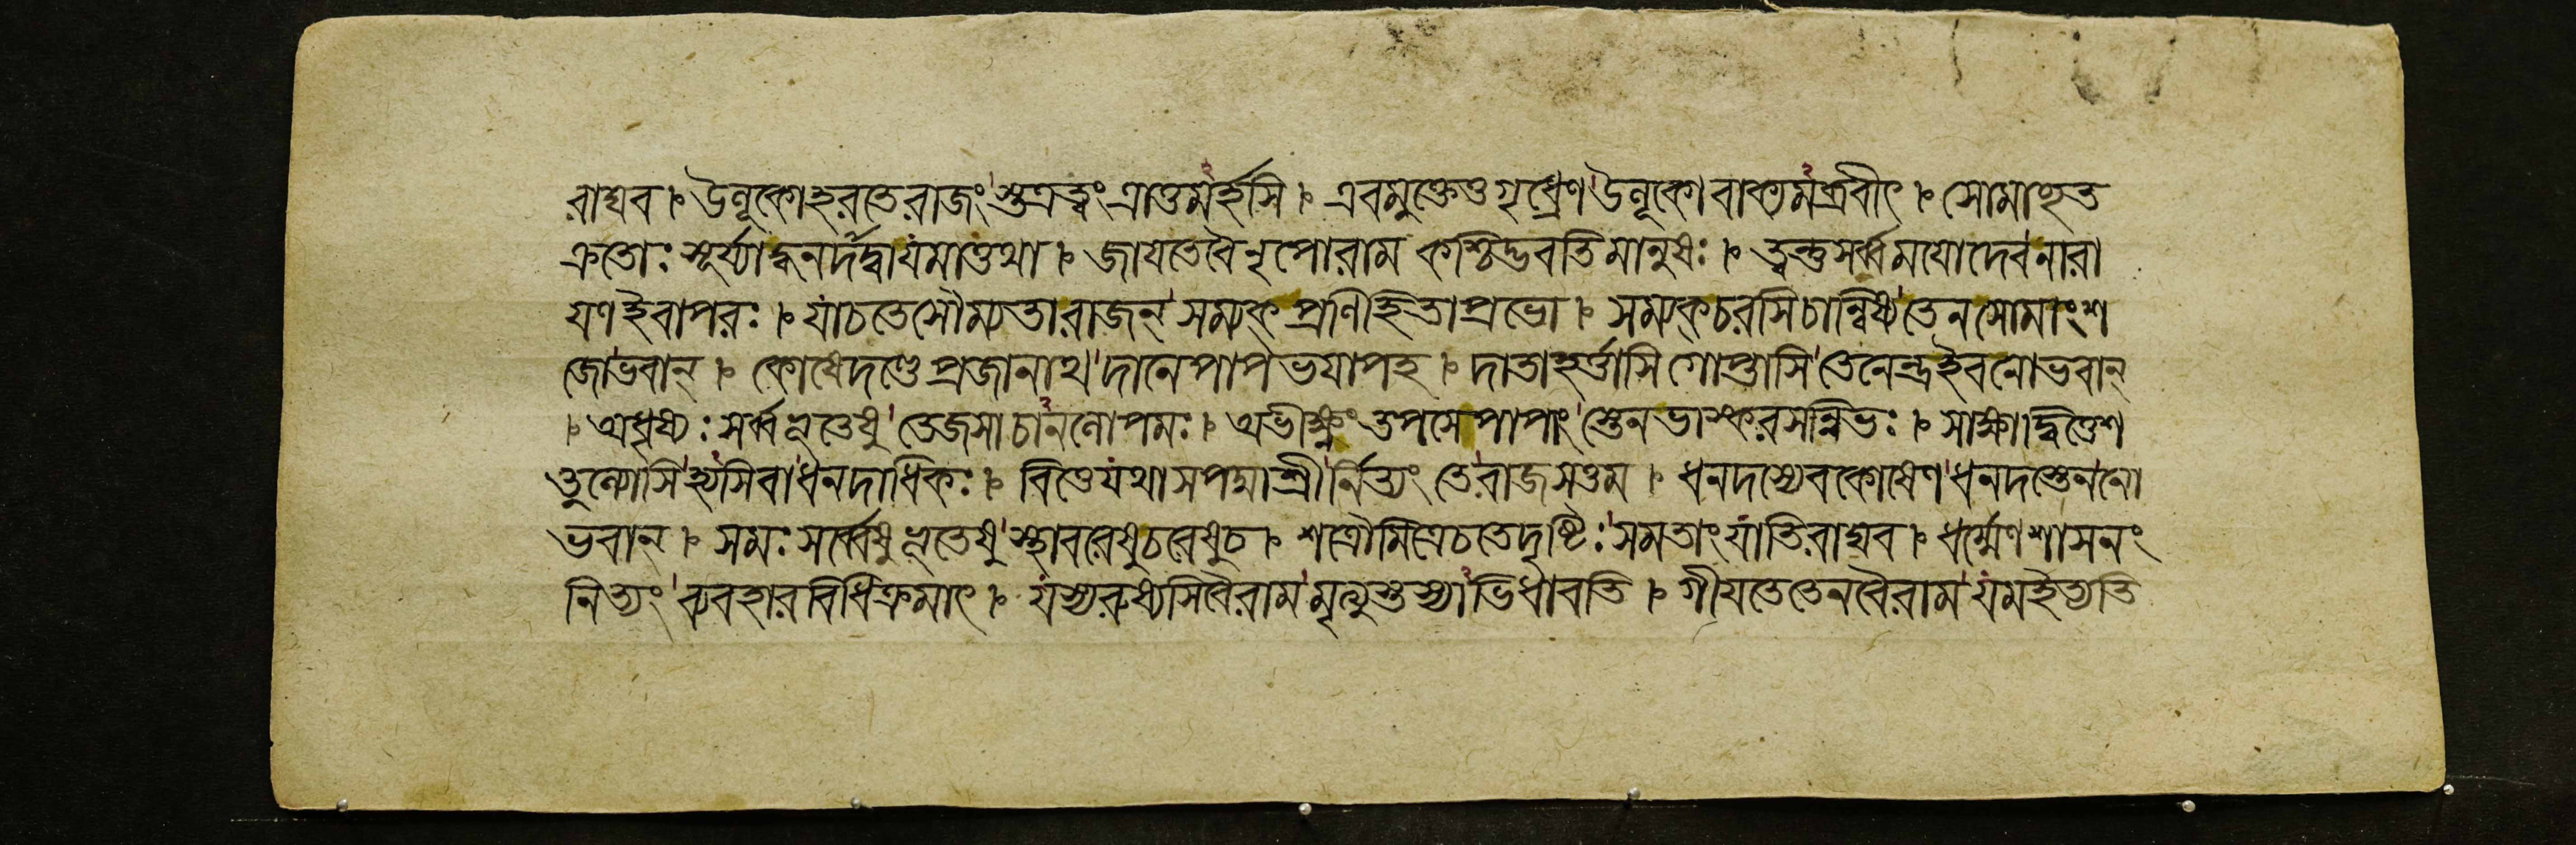 রাঘব । উলূকোহরতে রাজংস্তত্রত্বং ত্রাতুমর্হসি । এবমুক্তেতুগৃধ্রেণউলূকোবাক্যমব্রবীৎ । সোমাচ্ছত
ক্রতোঃ সূর্য্যাদ্ধনদাদ্বাযমাত্তথা । জাযতেবৈনৃপোরাম কশ্চিদ্ভবতিমানুষঃ । ত্বন্তুসর্ব্বমযোদেবনারা
যণইবাপরঃ । যাচতেসৌম্যতারাজন্ সম্যক্ প্রণিহিতাপ্রভো । সম্যক্ চরসিচান্বিষ্যতেনসোমাংশ
জোভবান্ । কোষেদণ্ডেপ্রজানাথদানেপাপভযাপহ । দাতাহর্ত্তাসিগোপ্তাসিতেনেন্দ্রইবনোভবান্
। অধৃষ্যঃ সর্ব্বভূতেষুতেজসাচানলোপমঃ । অভীক্ষ্ণং তপসেপাপাংস্তেনভাস্করসন্নিভঃ । সাক্ষাদ্বিত্তেশ
তুল্যোসিহ্যসিবাধনদাধিকঃ । বিত্তেযথাসপদ্মাশ্রীর্নিত্যং তেরাজসত্তম । ধনদস্যেবকোষেণধনদস্তেননো
ভবান্ । সমঃ সর্ব্বেষুভূতেষুস্থাবরেষুচরেষুচ । শত্রৌমিত্রেচতেদৃষ্টিঃসমতাং যাতিরাঘব । ধর্ম্মেণশাসনং
নিত্যং ব্যবহারবিধিক্রমাৎ । যস্যরুষ্যসিবৈরামমৃত্যুস্তস্যাভিধাবতি । গীযতেতেনবৈরামযমইত্যতি